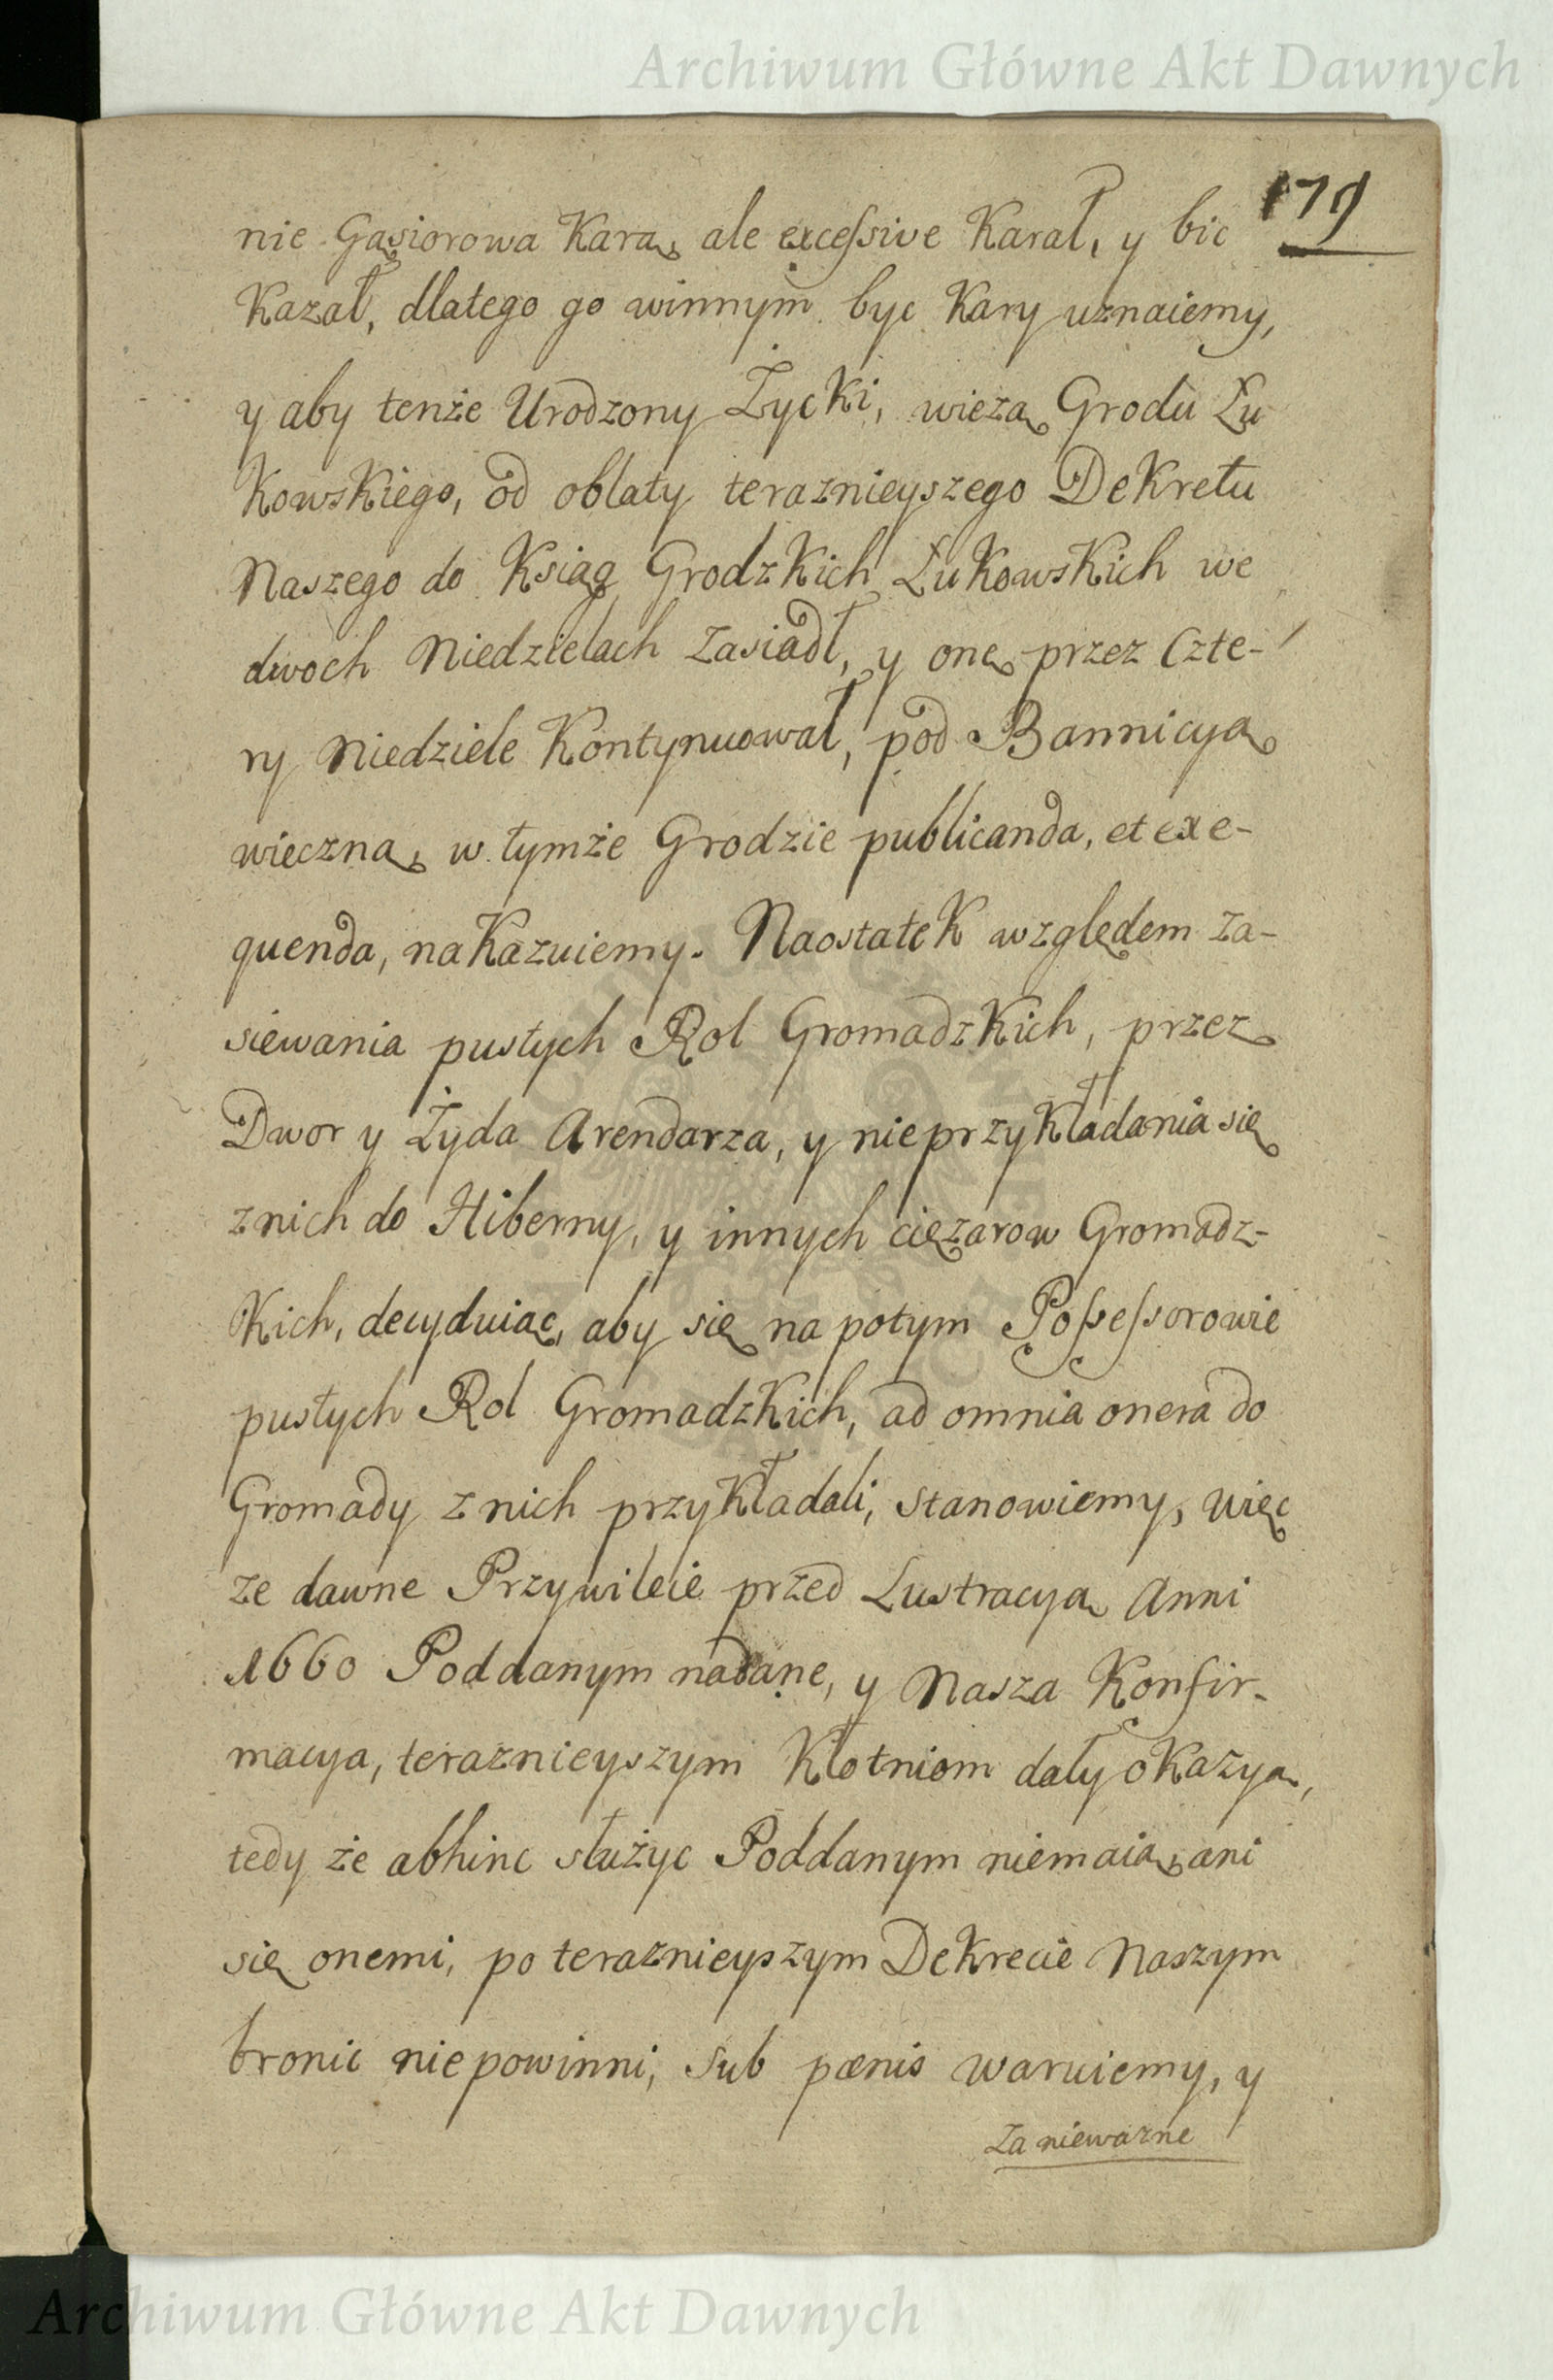 Archiwum Główne Akt Dawnych
179
nie Gąsiorowa Karą, ale excessive Karał, y bic
Kazał, dlatego go winnym byc Kary uznaiemy,
y aby tenże Urodzony Życki, wieżą Grodu Łu
Kowskiego, od oblaty teraznieyszego Dekretu
Naszego do Ksiąg Grodzkich Łukowskich we
dwoch Niedzielach zasiadł, y onę przez Czte-
ry Niedziele Kontynuował, pod Bannicyą
wieczną, w tymże Grodzie publicanda, et exe-
quenda, nakazuiemy. Naostatek względem za-
siewania pustych Rol Gromadzkich, przez
Dwor y Żyda Arendarza, y nieprzykładania się
znich do Hiberny, y innych ciężarow Gromadz-
Kich, decyduiąc, aby się napotym Possessorowie
pustych Rol Gromadzkich, ad omnia onera do
Gromady znich przykładali, stanowiemy, więc
ze dawne Przywileie przed Lustracyą Anni
1660 Poddanym nadane, y Nasza Konfir-
macya, teraznieyszym Kłotniom dały okazyą,
tedy że abhinc służyc Poddanym niemaią, ani
się onemi, po teraznieyszym Dekrecie Naszym
bronic niepowinni, sub pœnis waruiemy, y
za niewazne
Archiwum Główne Akt Dawnych